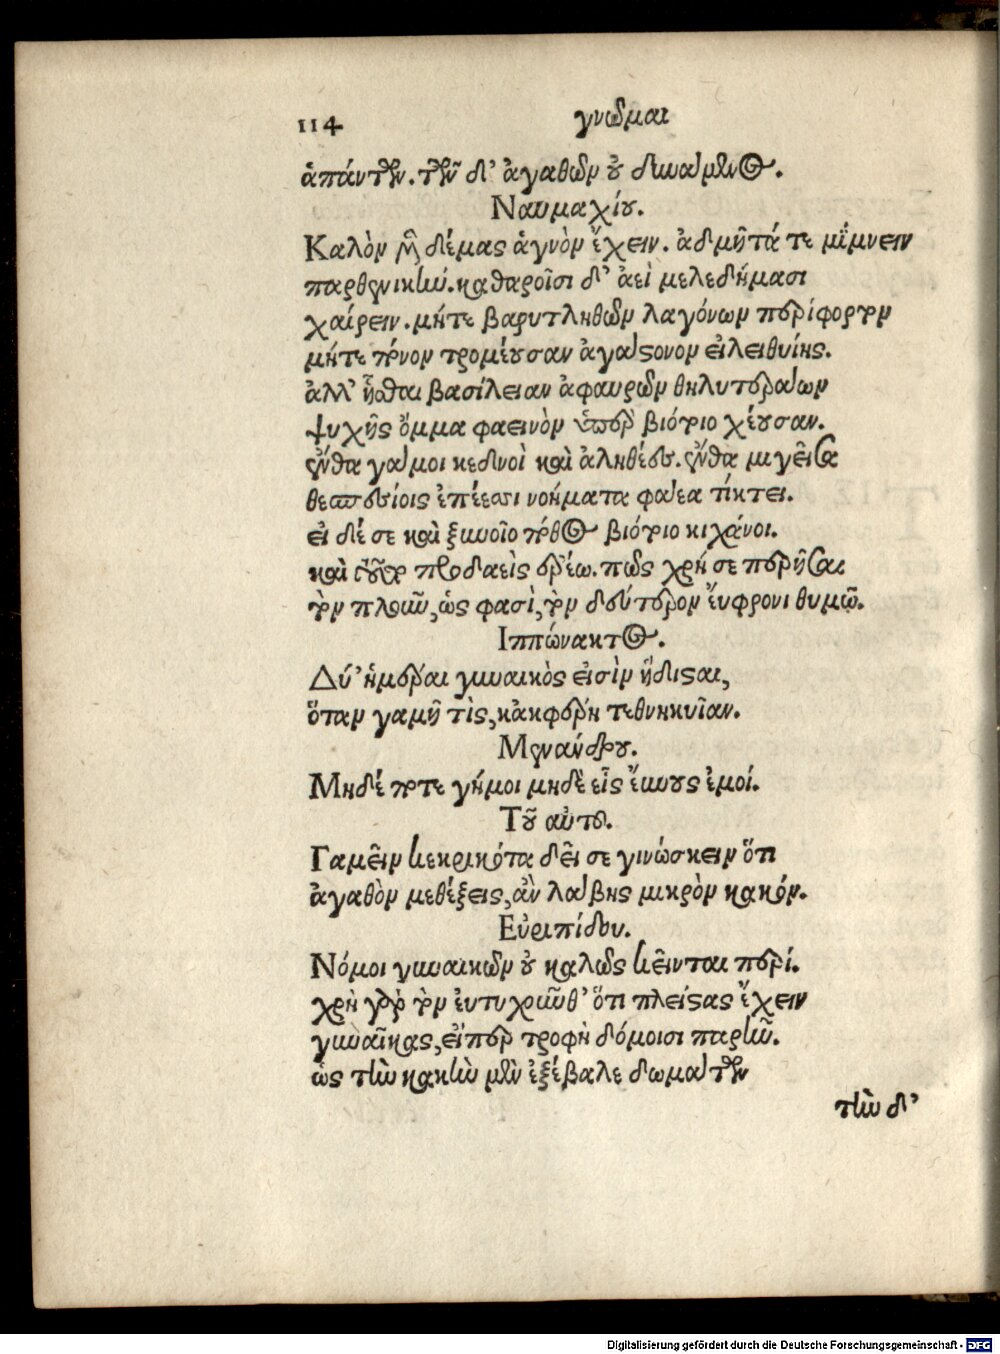 114 γνῶμαι
ἁπάντων. τῶν δ' ἀγαθῶν οὐ δυναμένος.
Ναυμαχίου.
Καλὸν μὲν δέμας ἁγνὸν ἔχειν. ἀδμῆτά τε μίμνειν
παρθενικὴν. καθαροῖσι δ' ἀεὶ μελεδήμασι
χαίρειν. μήτε βαρυτλήθων λαγόνων περίφορτον
μήτε πόνον τρομέουσαν ἀγάστονον εἰλειθυίης.
ἀλλ' ἧσθαι βασίλειαν ἀφαυρῶν θηλυτεράων
ψυχῆς ὄμμα φαεινὸν ὑπὲρ βιότοιο χέουσαν.
ἔνθα γάμοι κεδνοὶ καὶ ἀληθέες. ἔνθα μιγεῖσα
θεσπεσίοις ἐπέεσσι νοήματα φάεα τίκτει.
εἰ δέ σε καὶ ξυνοῖο πόθος βιότοιο κιχάνοι.
καὶ προδαεὶς ἐρέω. πῶς χρή σε περῆσαι
τὸν πλοῦν, ὡς φασὶ, τὸν δεύτερον εὔφρονι θυμῷ.
Ιππώνακτος.
Δύ' ἡμέραι γυναικὸς εἰσὶν ἥδισται,
ὅταν γαμῇ τὶς, κἀκφέρῃ τεθνηκυῖαν.
Μενάνδρου.
Μηδέποτε γήμοι μηδὲ εἷς εὔνους ἐμοί.
Τοῦ αὐτοῦ.
Γαμεῖν κεκρικότα δεῖ σε γινώσκειν ὅτι
ἀγαθὸν μεθέξεις, ἂν λάβῃς μικρὸν κακόν.
Εὐριπίδου.
Νόμοι γυναικῶν οὐ καλῶς κεῖνται πέρι.
χρὴ γὰρ τὸν εὐτυχοῦνθ' ὅτι πλείστας ἔχειν
γυναῖκας, εἴπερ τροφὴ δόμοισι παρῆν.
ὡς τὴν κακὴν μὲν ἐξέβαλε δωμάτων
τὴν δ'
Digitalisierung gefördert durch die Deutsche Forschungsgemeinschaft - DFG